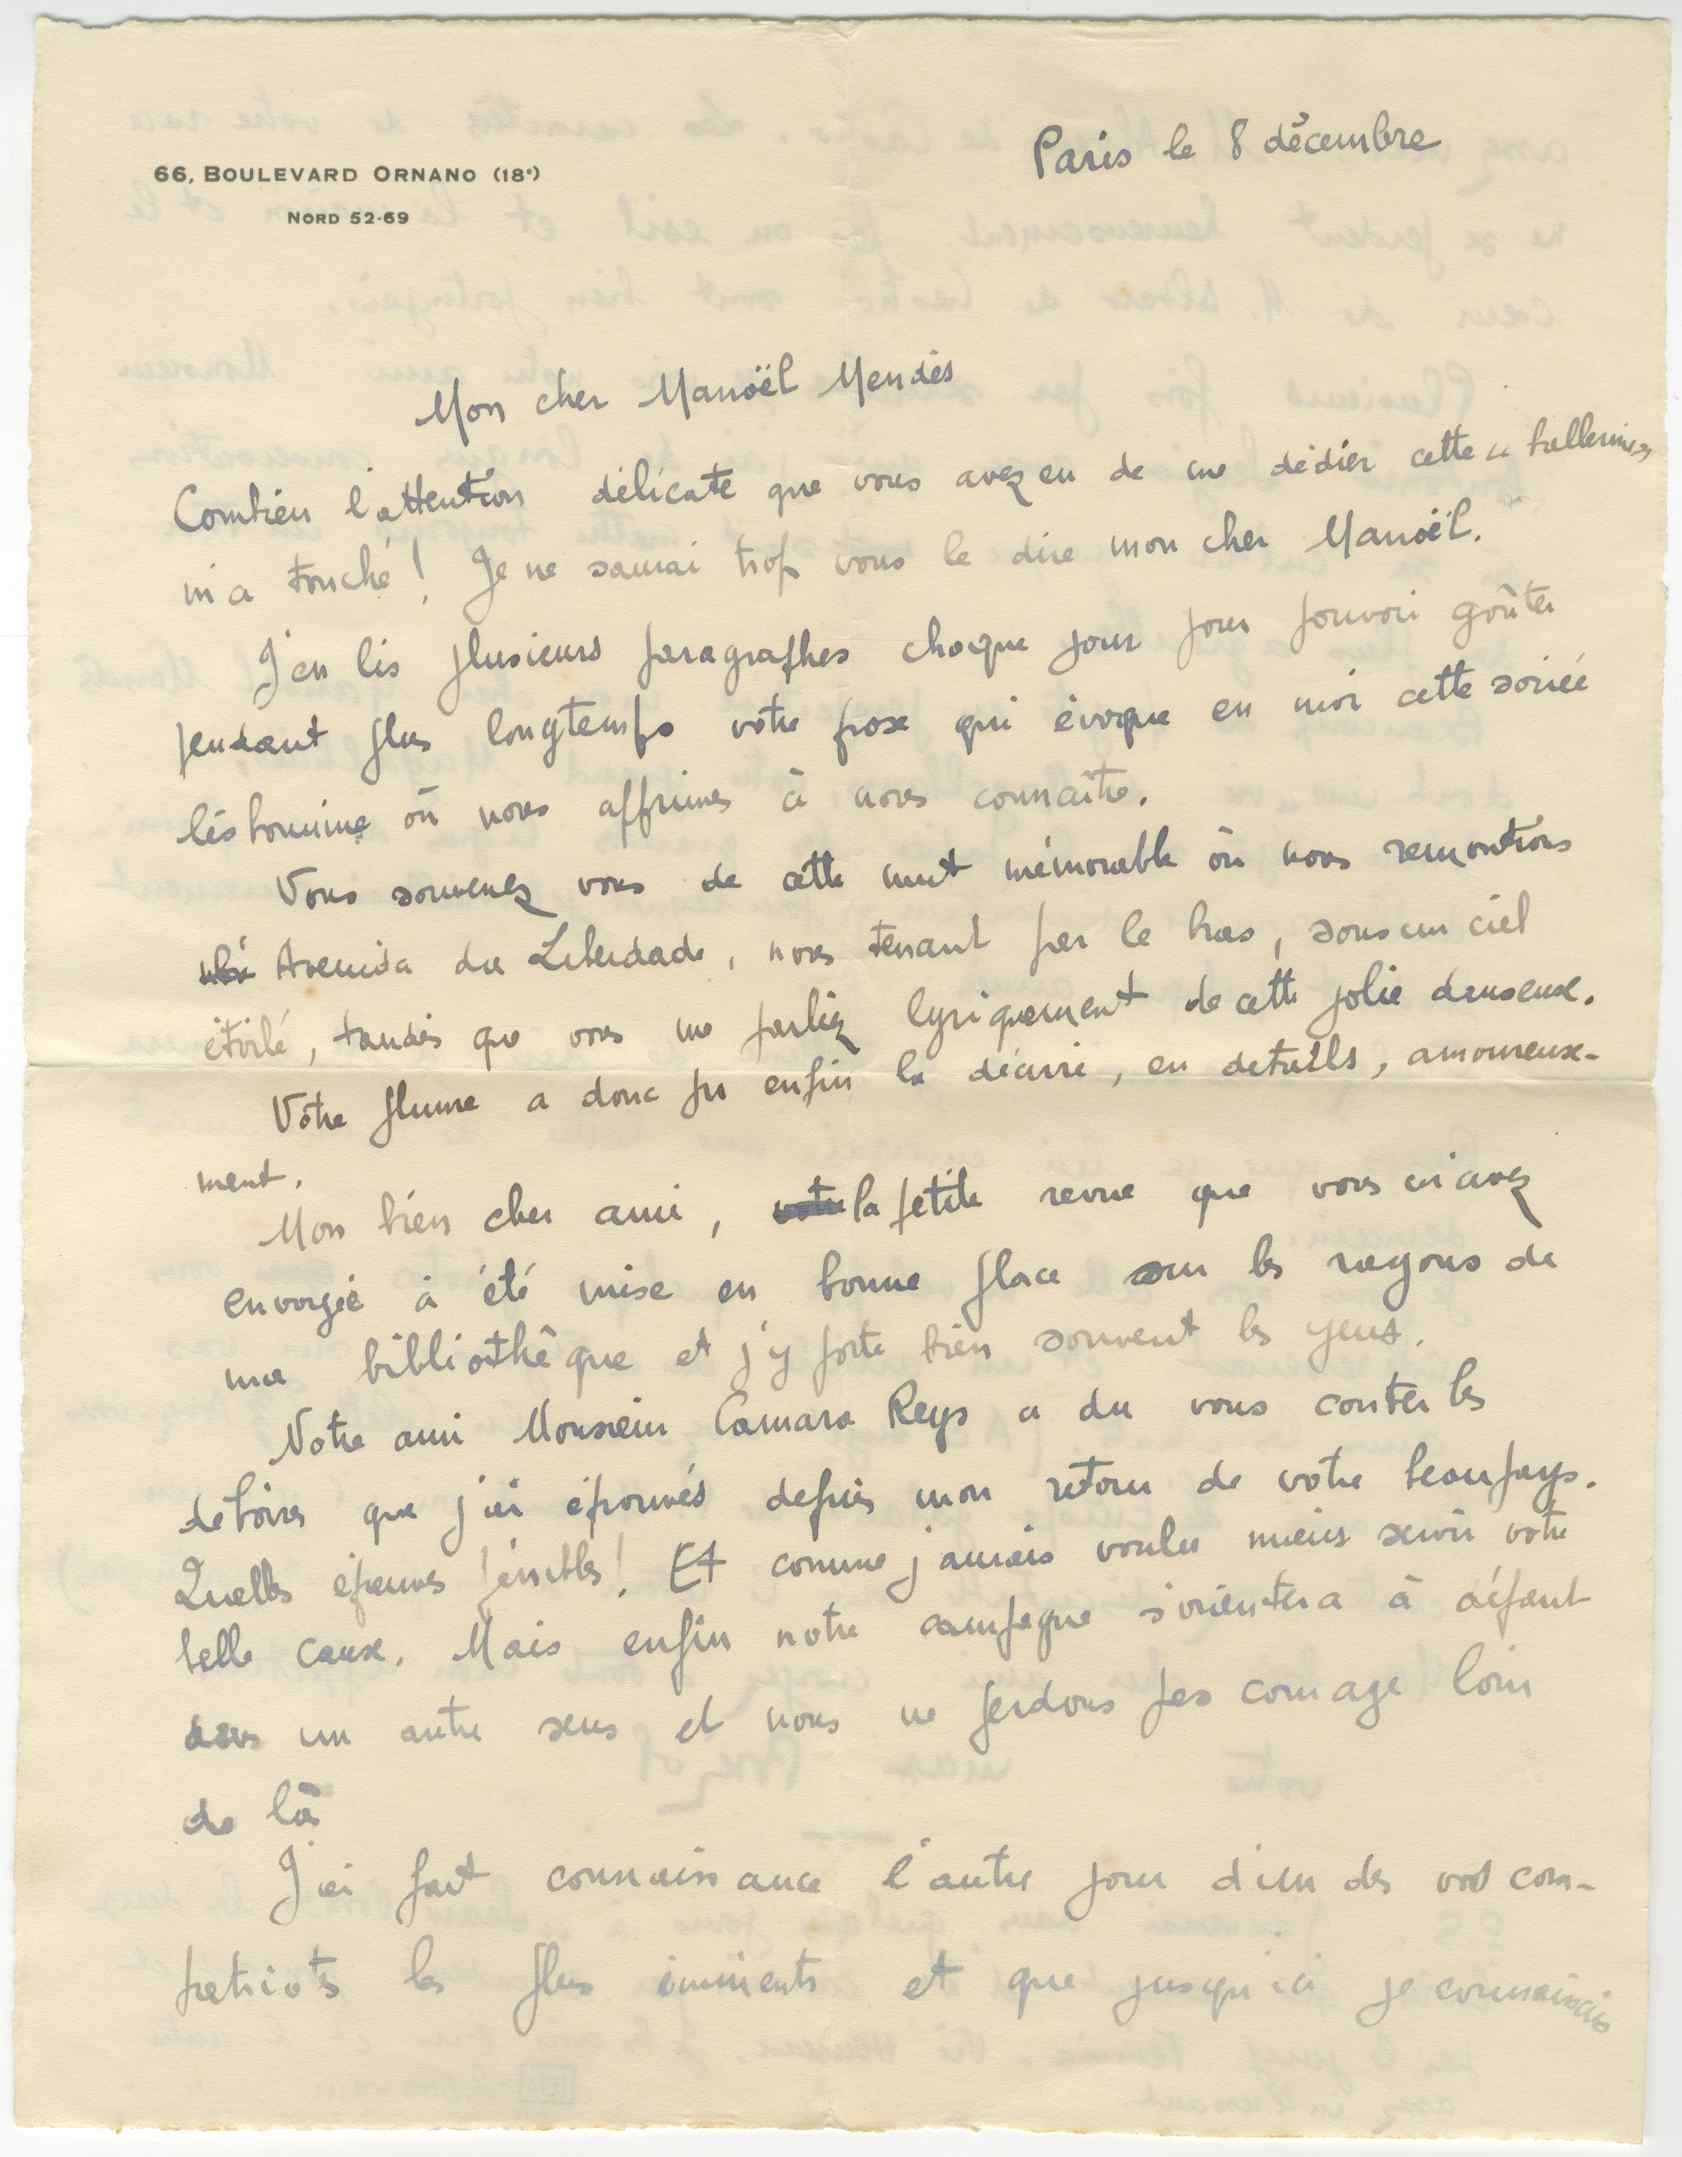 66, BOULEVARD ORNANO (18e)
NORD 52-69
Paris le 8 décembre
Mon cher Manoël Mendès
Combien l'attention délicate que vous avez eu de me dédier cette "ballerine"
m'a touché! Je ne saurai trop vous le dire mon cher Manoël.
J'en lis plusieurs paragraphes chaque jour pour pouvoir goûter
pendant plus longtemps votre prose qui évoque en moi cette soirée
lisbonnine où nous apprîmes à nous connaître.
Vous souvenez vous de cette nuit mémorable où nous remontions
Avenida da Liberdade, nous tenant par le bras, sous un ciel
étoilé, tandis que vous me parliez lyriquement de cette jolie danseuse.
Votre plume a donc pu enfin la décrire, en détails, amoureuse-
ment.
Mon bien cher ami, votre la petite revue que vous m'avez
envoyée à été mise en bonne place sur les rayons de
ma bibliothêque et j'y porte bien souvent les yeux.
Notre ami Monsieur Camara Reys a du vous conter les
déboires que j'ai éprouvés depuis mon retour de votre beau pays.
Quelles épreuves pénibles! Et comme j'aurais voulu mieux servir votre
belle cause. Mais enfin notre campagne s'orientera à défaut
dans un autre sens et nous ne perdons pas courage loin
de là
J'ai fait connaissance l'autre jour d'un des vos com-
patriotes les plus éminents et que jusqu'ici je connaissais